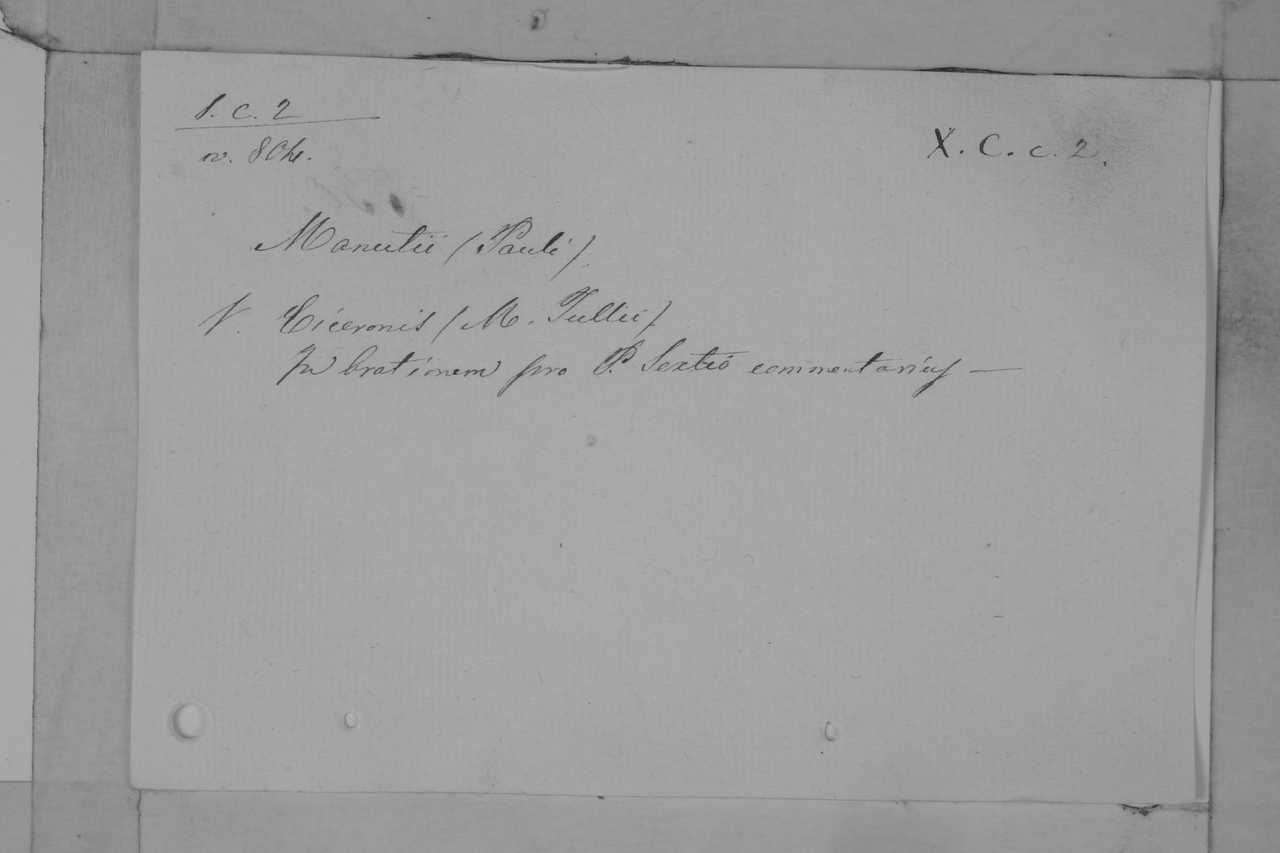 S. c. 2
X. C. c. 2.
Manutii (Pauli)
V. Ciceronis (M. Tullii)
In Orationem pro P. Sextio commentarius —